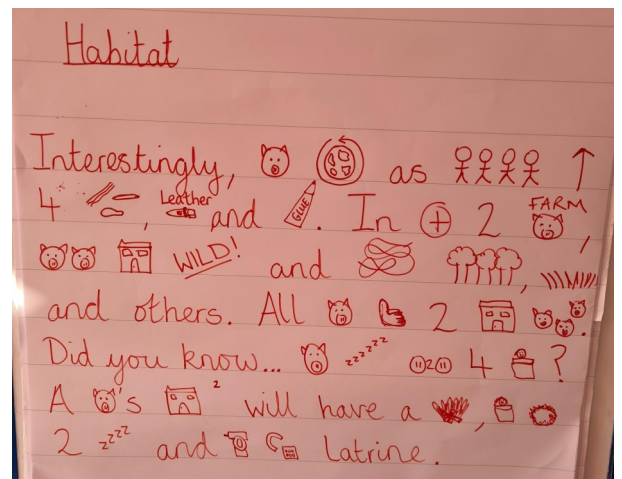 Habitat
Interestingly, as
4 , Leather and GLUE. In + 2 FARM,
WILD! and ,
and others. All 2 .
Did you know... zzzzzz 4 ?
A 's 2 will have a ,
2 zzzz and Latrine.